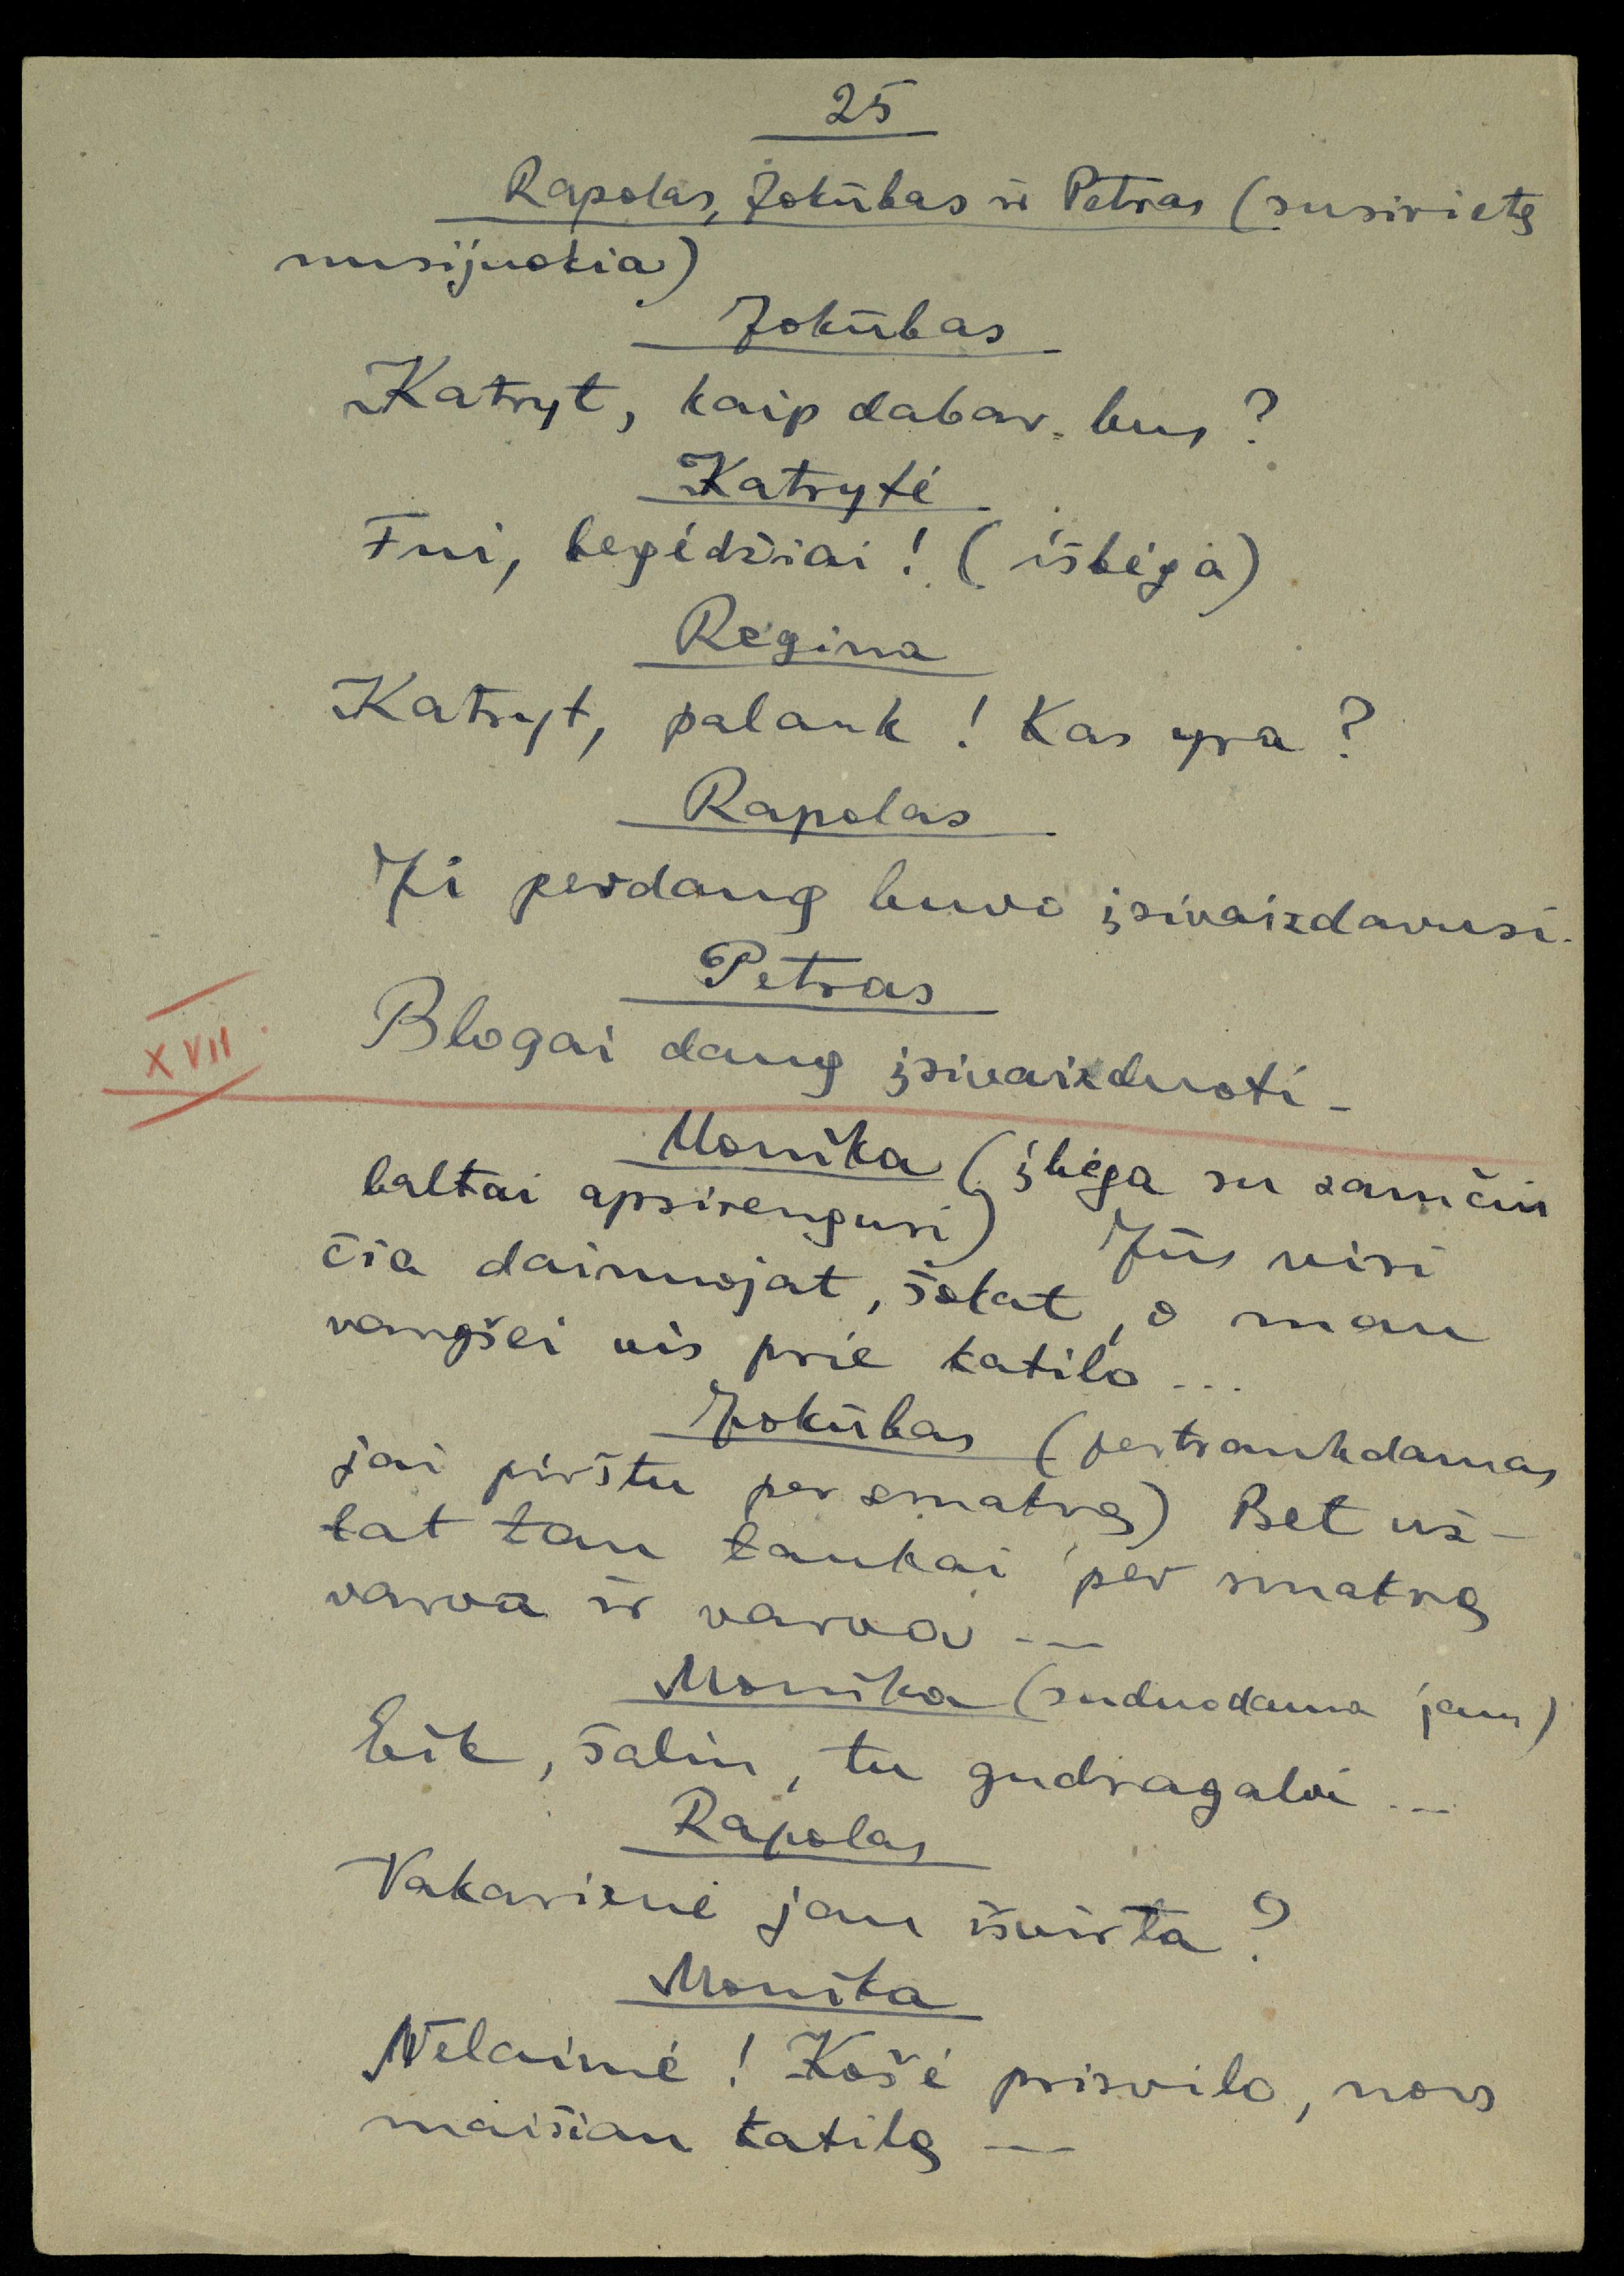 25
Rapolas, Jokūbas ir Petras (susirietę
nusijuokia)
Jokūbas
Katryt, kaip dabar bus?
Katrytė
Fui, begėdžiai! (išbėga)
Regina
Katryt, palauk! Kas yra?
Rapolas
Ji perdaug buvo įsivaizdavusi.
Petras
Blogai daug įsivaizduoti -
XVII
Monika (įbėga su samčiu
baltai apsirengusi) Jūs visi
čia dainuojat, šokat, o man
vargšei vis prie katilo...
Jokūbas (pertraukdamas
jai pirštu per smakrą) Bet už-
tat tau taukai per smakrą
varva ir varva ...
Monika (suduodama jam)
Eik, šalin, tu gudragalvi ...
Rapolas
Vakarienė jau išvirta?
Monika
Nelaimė! Košė prisvilo, nors
maišiau katilą ...